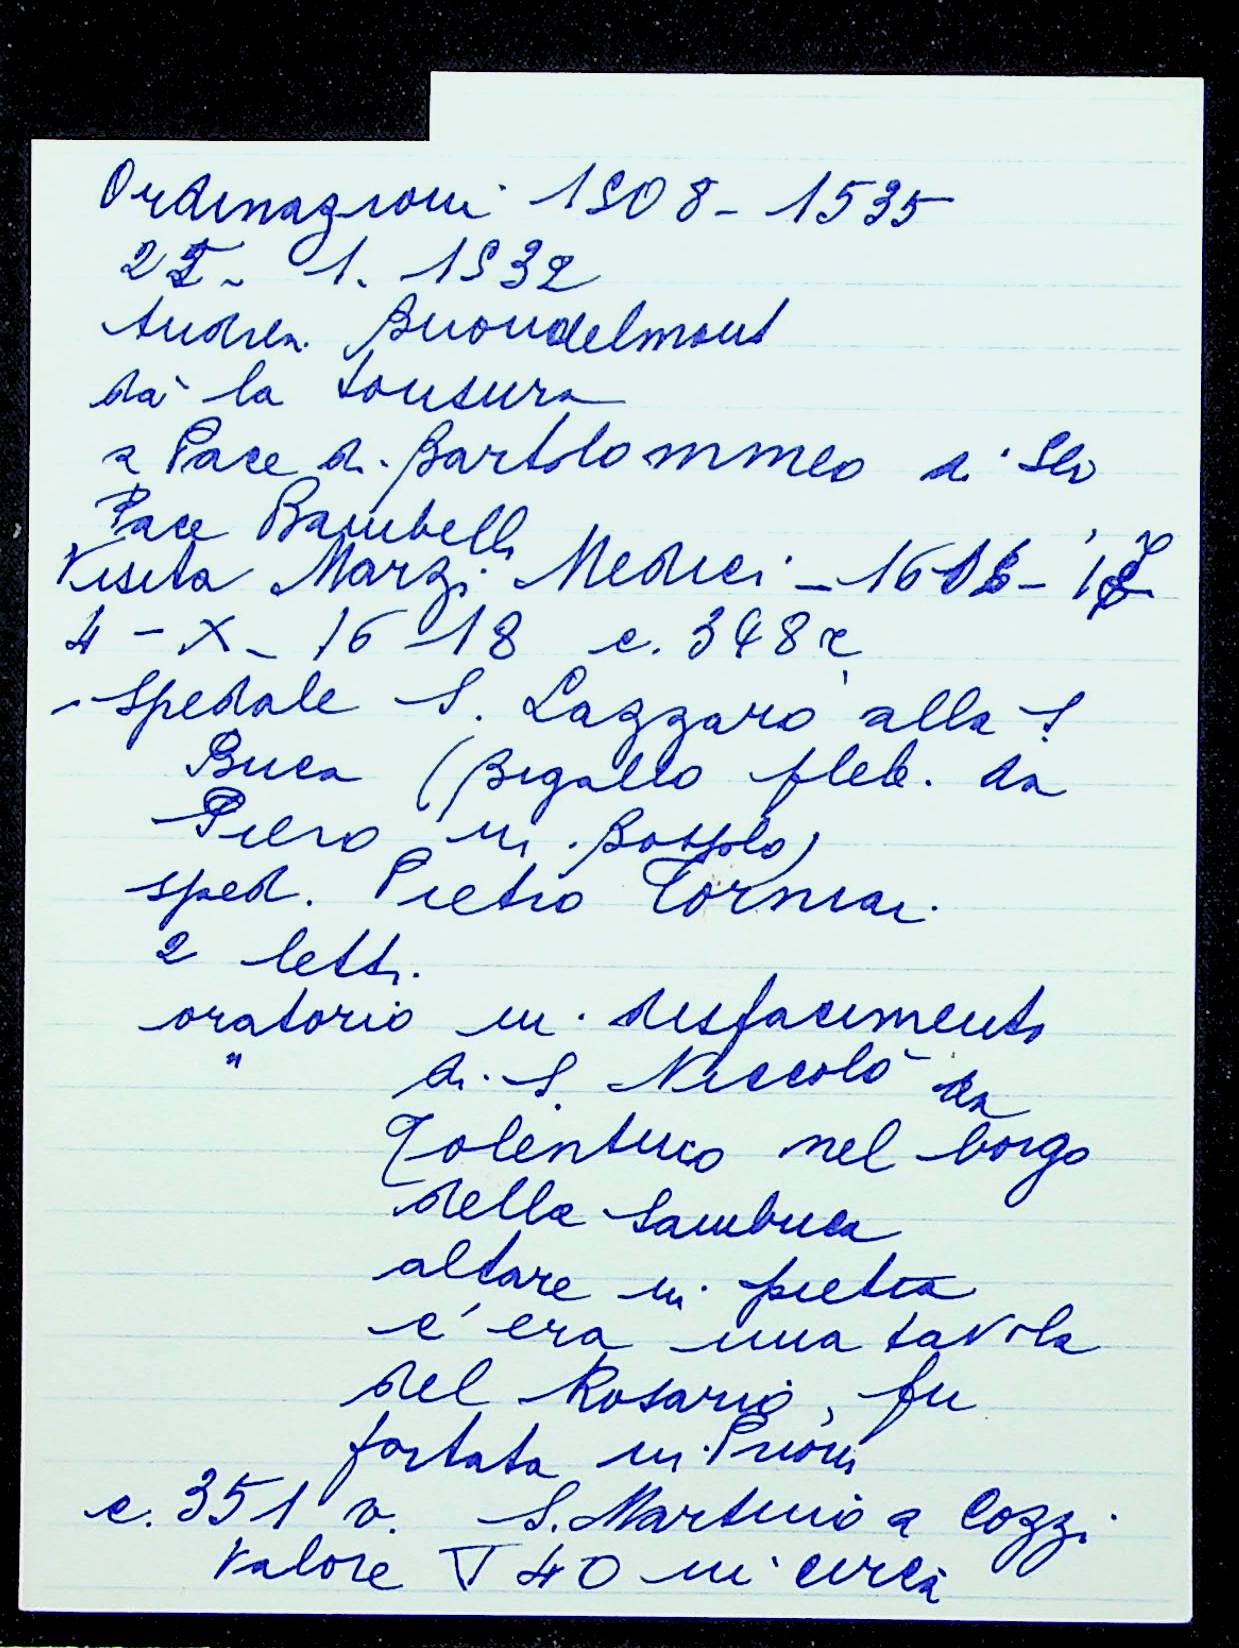 Ordinazioni 1508 - 1535
1. 1532
Andrea Buondelmonti
dà la tonsura
a Pace di Bartolommeo di Ser
Pace Bambelli
Visita Marzi Medici -
4 - X - 1618 c. 348 r
- Spedale S. Lazzaro alla S.
Buca (Bigallo pleb. da
Piero in Bossolo)
sped. Pietro Torniai
2 letti
oratorio in disfacimento
" di S. Niccolò da
Tolentino nel borgo
della Sambuca
altare in pietra
c'era una tavola
del Rosario, fu
portata in Prioria
c. 351 v. S. Martino a Cozzi
Valore 40 in circa